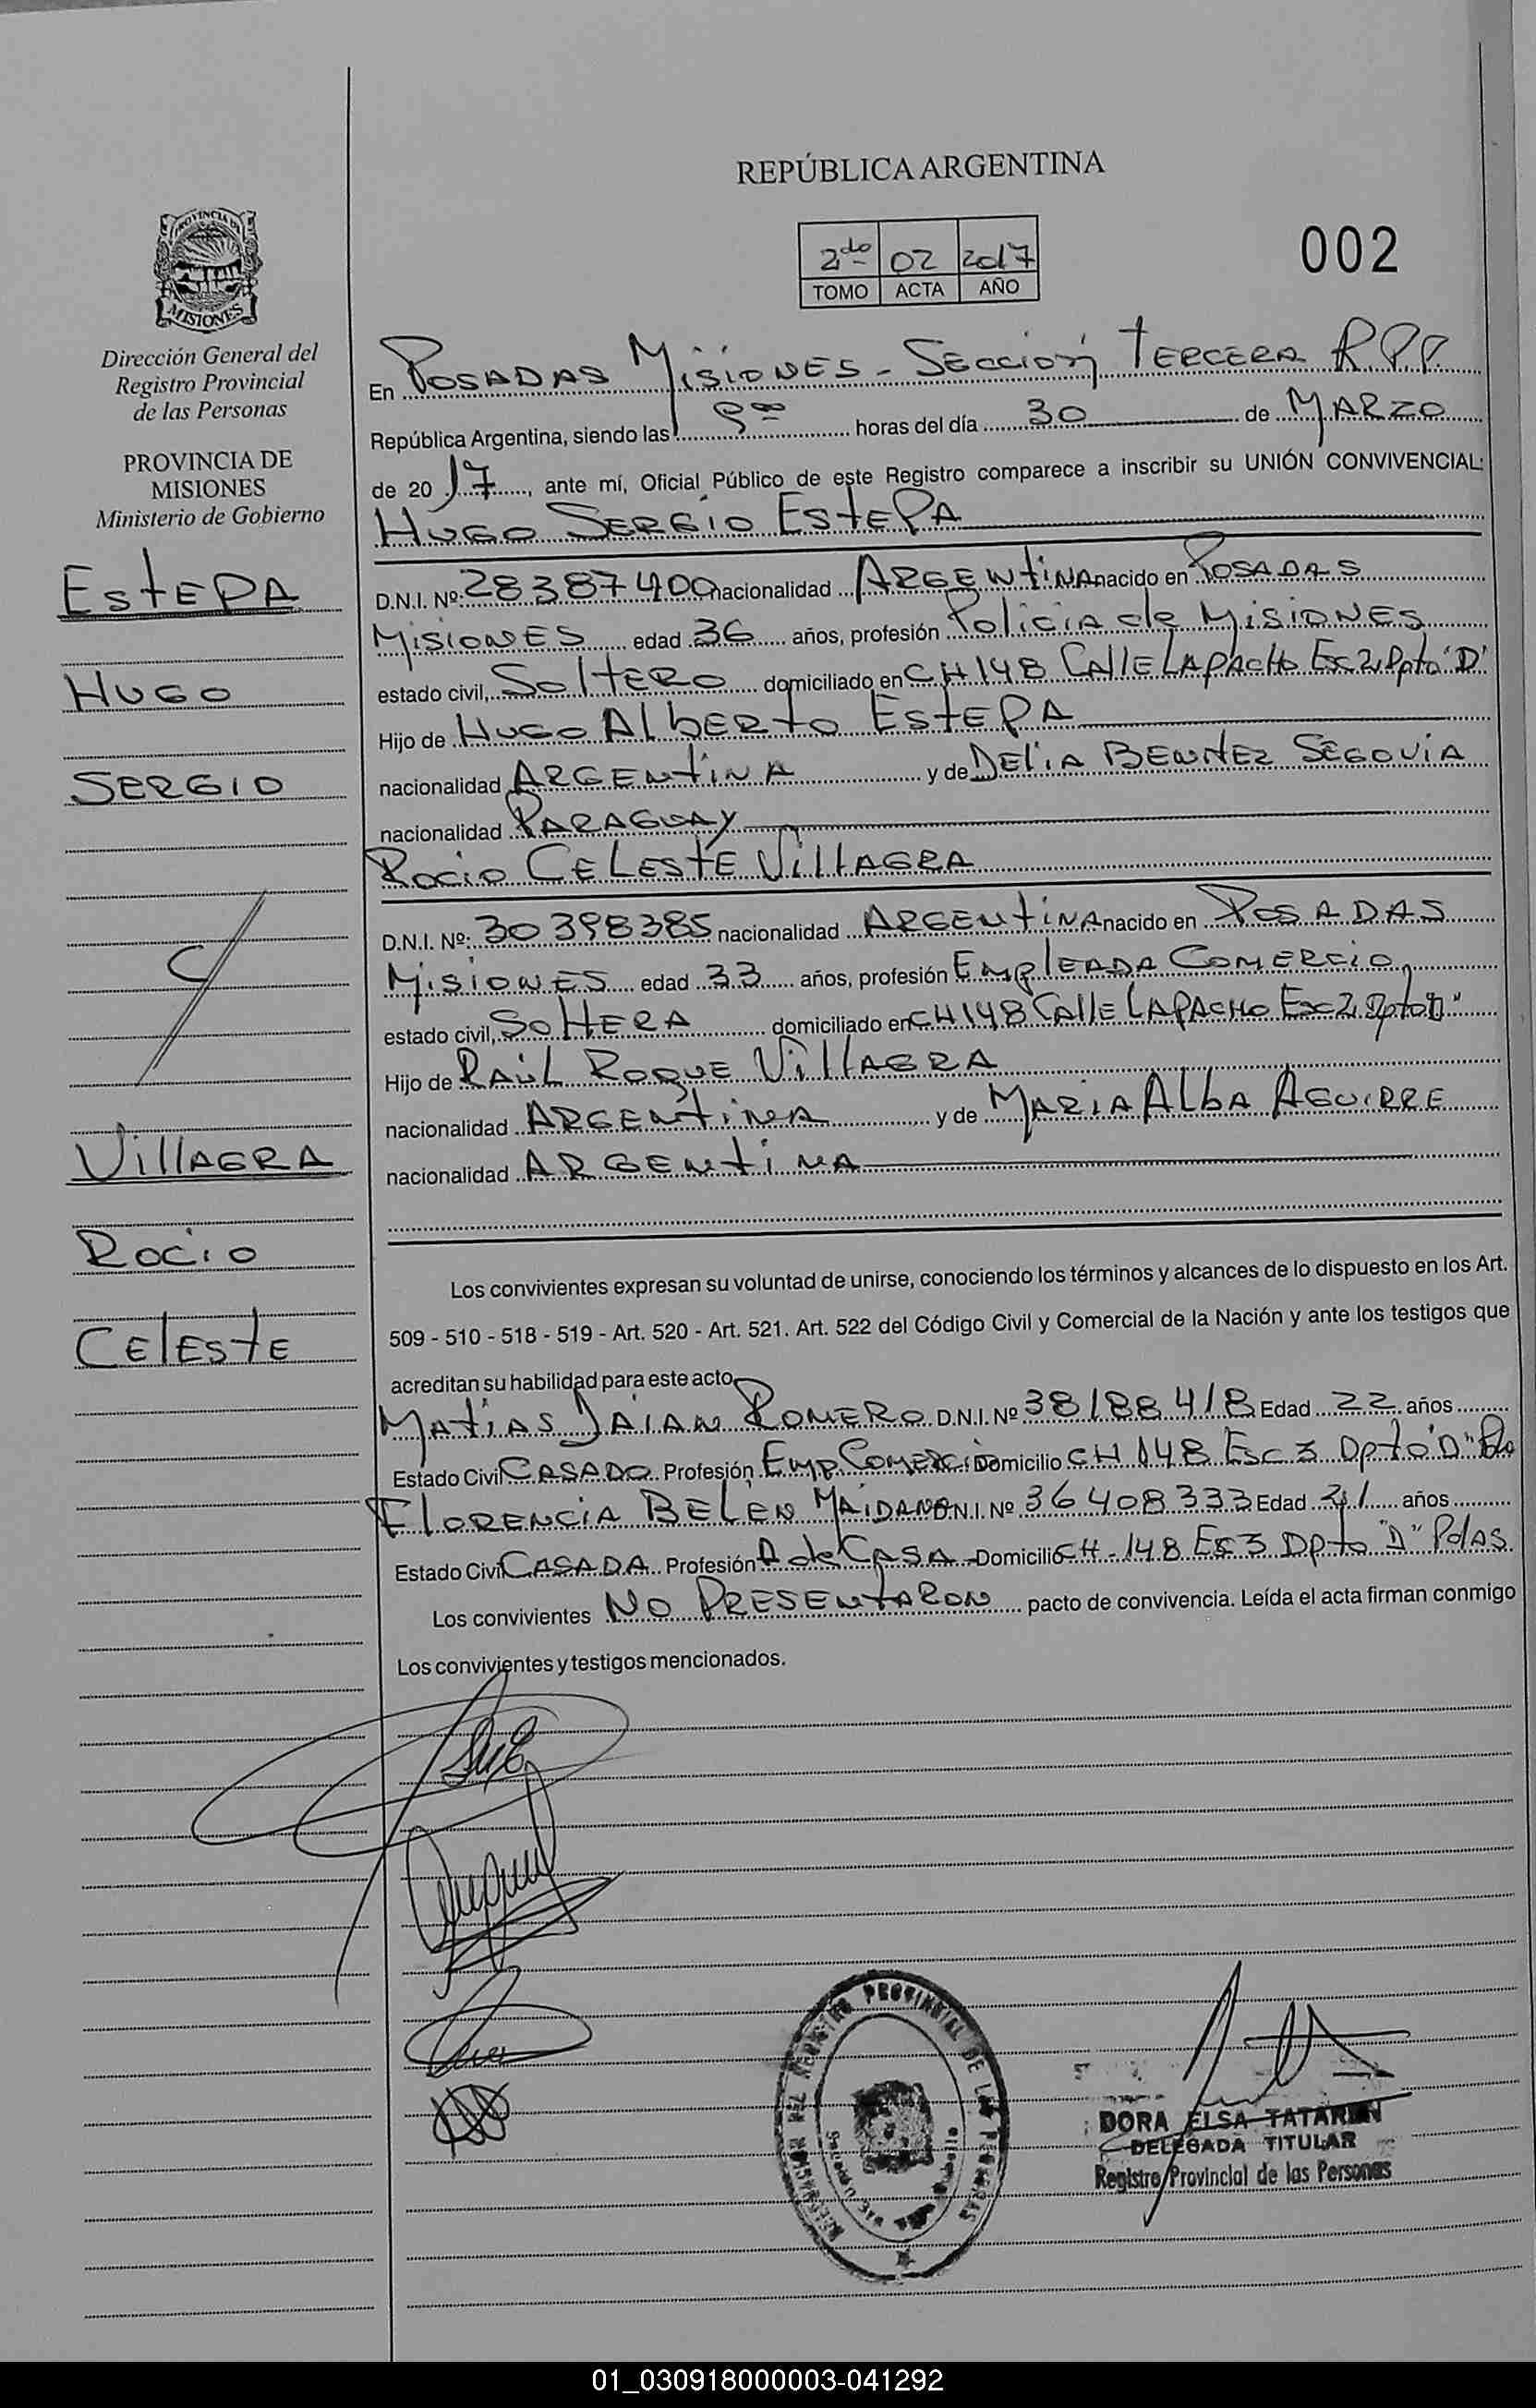 REPÚBLICA ARGENTINA
2do 02 2017
TOMO ACTA AÑO
002
PROVINCIA DE
MISIONES
Dirección General del
Registro Provincial
de las Personas
PROVINCIA DE
MISIONES
Ministerio de Gobierno
ESTEPA
HUGO
SERGIO
C/
VILLAGRA
ROCIO
CELESTE
En POSADAS MISIONES - SECCIÓN TERCERA R.P.P.
República Argentina, siendo las horas del día 30 de MARZO
de 20 17, ante mí, Oficial Público de este Registro comparece a inscribir su UNIÓN CONVIVENCIAL:
HUGO SERGIO ESTEPA
D.N.I. Nº: 28387400 nacionalidad ARGENTINA nacido en POSADAS
MISIONES edad 36 años, profesión Policia de MISIONES
estado civil, SOLTERO domiciliado en CH 148 CALLE LAPACHO Esc 2 Dpto "D"
Hijo de HUGO ALBERTO ESTEPA
nacionalidad ARGENTINA y de DELIA BENITEZ SEGOVIA
nacionalidad PARAGUAY
ROCIO CELESTE VILLAGRA
D.N.I. Nº: 30398385 nacionalidad ARGENTINA nacido en POSADAS
MISIONES edad 33 años, profesión EMPLEADA COMERCIO
estado civil, SOLTERA domiciliado en CH 148 CALLE LAPACHO Esc 2 Dpto "D"
Hijo de RAÚL ROQUE VILLAGRA
nacionalidad ARGENTINA y de MARIA ALBA AGUIRRE
nacionalidad ARGENTINA
Los convivientes expresan su voluntad de unirse, conociendo los términos y alcances de lo dispuesto en los Art.
509 - 510 - 518 - 519 - Art. 520 - Art. 521. Art. 522 del Código Civil y Comercial de la Nación y ante los testigos que
acreditan su habilidad para este acto
MATIAS JAIAN ROMERO D.N.I. Nº 38188418 Edad 22 años
Estado Civil CASADO Profesión EMP. COMERCIO Domicilio CH 148 Esc 3 Dpto "D"
FLORENCIA BELÉN MAIDANA D.N.I. Nº 36408333 Edad años
Estado Civil CASADA Profesión A de CASA Domicilio CH - 148 Es 3 Dpto "D" Pdas
Los convivientes NO PRESENTARON pacto de convivencia. Leída el acta firman conmigo
Los convivientes y testigos mencionados.
REGISTRO PROVINCIAL DE LAS PERSONAS
DORA ELSA
DELEGADA TITULAR
Registro Provincial de las Personas
01_030918000003-041292